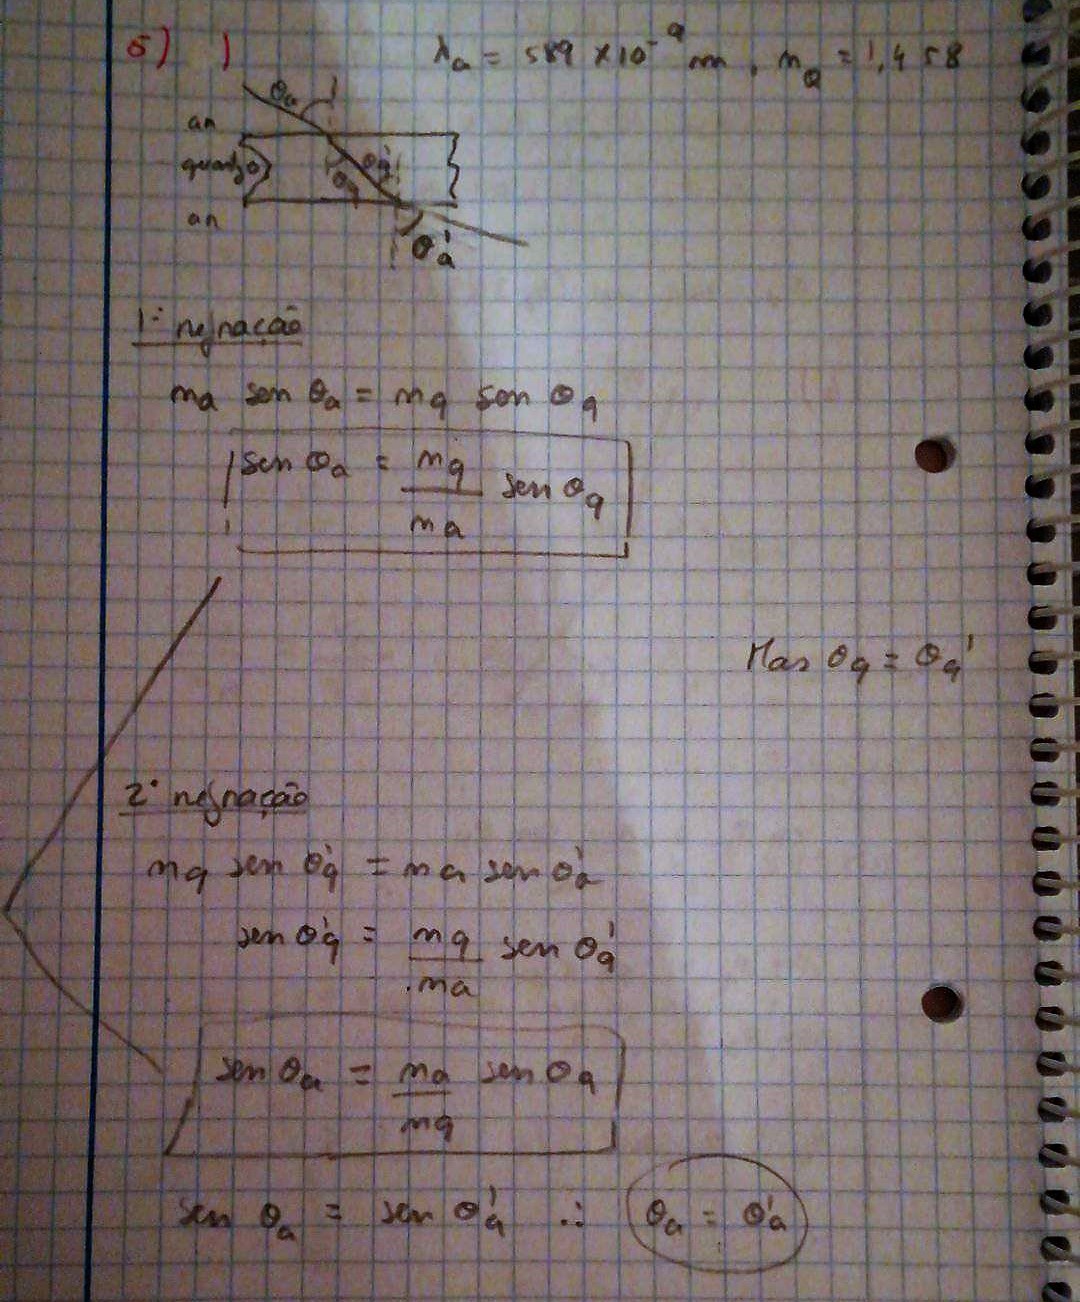 5) )
λa = 589 × 10⁻⁹ m, nq = 1,458
θa
ar
quartzo
θq θq'
ar
θa'
1ª refração
na sen θa = nq sen θq
sen θa = nq/na sen θq
Mas θq = θq'
2ª refração
nq sen θq' = na sen θa'
sen θq' = nq/na sen θq'
sen θa = na/nq sen θq
sen θa = sen θa' ∴ θa = θa'